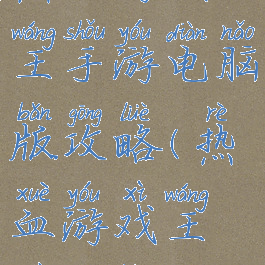 wáng shǒu yóu diàn nǎo
王手游电脑
bǎn gōng lüè rè
版攻略(热
xuè yóu xì wáng
血游戏王